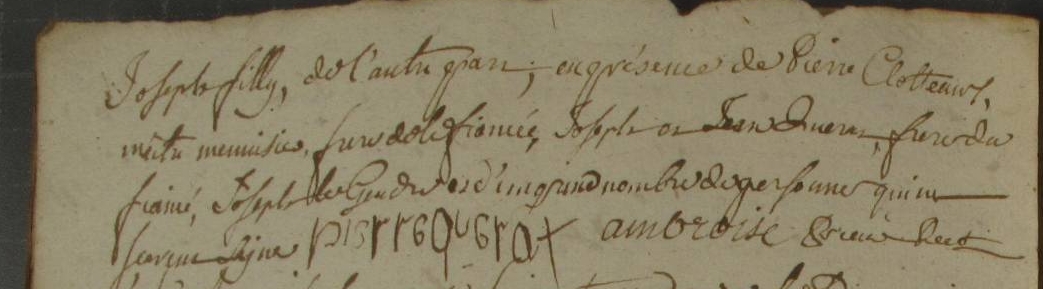 Joseph filly, de l'autre part; en présence de Pierre Clotteaux,
maitre menuisier, frere de la fiancée, Joseph et Jean Queret, frere du
fiancé, Joseph le Gendre et d'un grand nombre de personnes qui ne
scavent signer pierre queret ambroise Rect